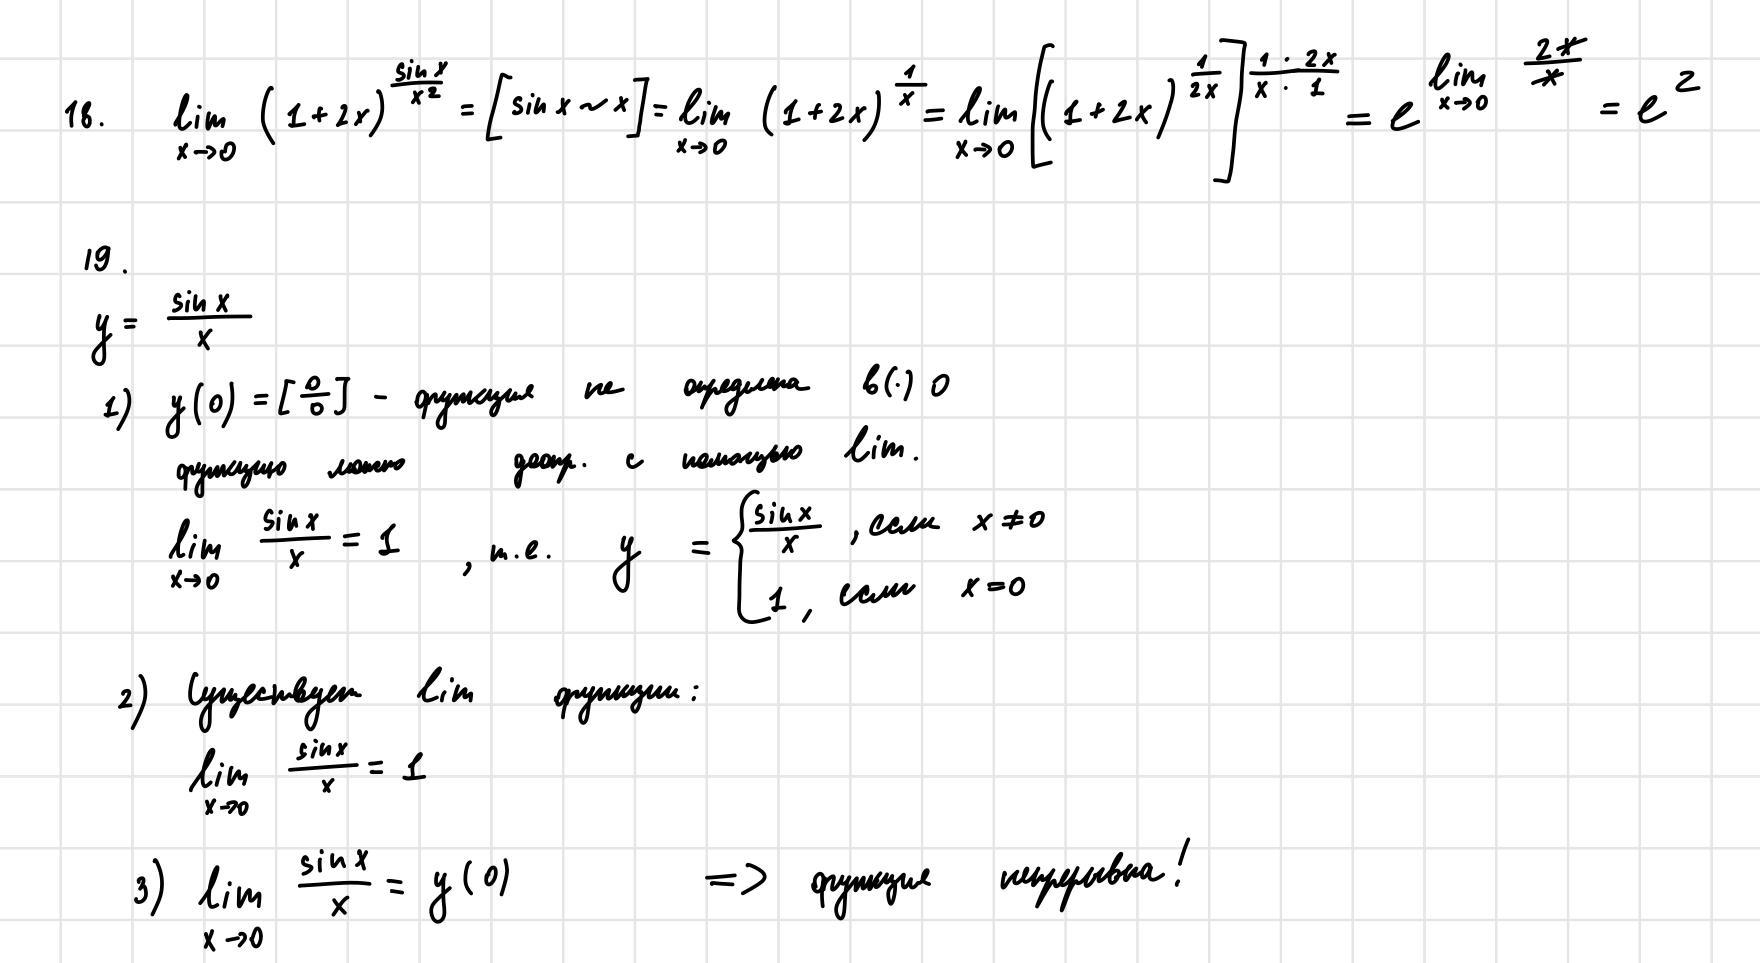 18. lim x→0 (1+2x)^(sin x / x²) = [sin x ~ x] = lim x→0 (1+2x)^(1/x) = lim x→0 [(1+2x)^(1/2x)]^(1·2x / x·1) = e^(lim x→0 2x/x) = e²
19.
y = sin x / x
1) y(0) = [0/0] - функция не определена в (·) 0
функцию можно доопр. с помощью lim.
lim x→0 sin x / x = 1 , т.е. y = { sin x / x , если x ≠ 0
1 , если x = 0
2) Существует lim функции:
lim x→0 sin x / x = 1
3) lim x→0 sin x / x = y(0) => функция непрерывна!